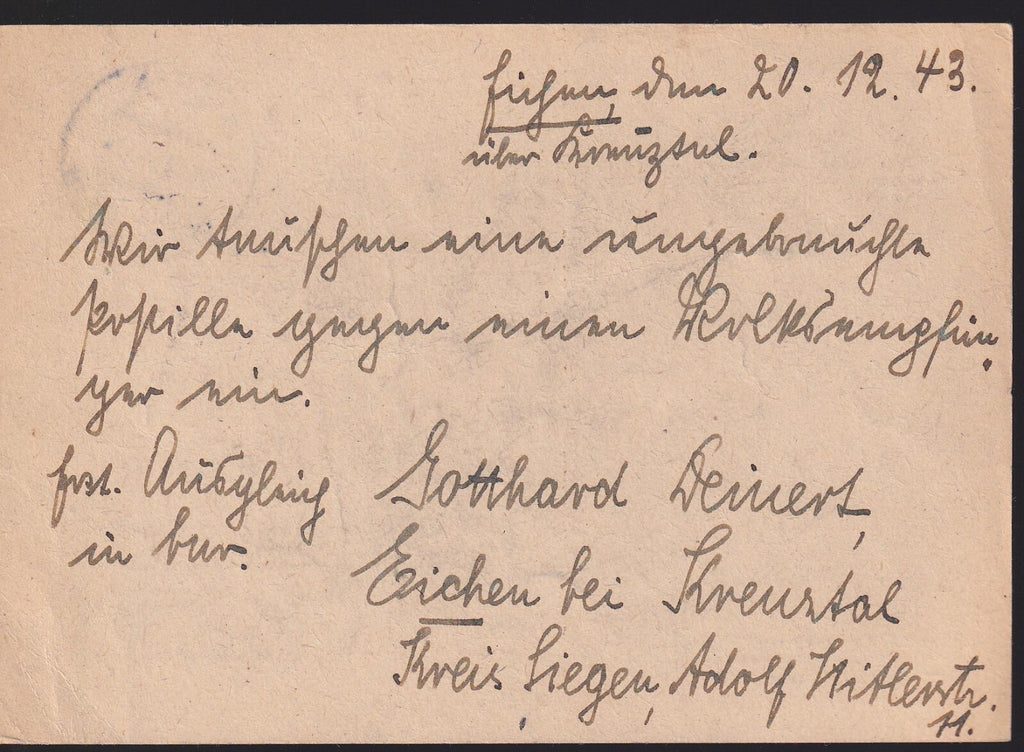 Eichen, den 20. 12. 43.
über Kreuztal.
Wir tauschen eine ungebrauchte
Postille gegen einen Volksempfän„
ger ein.
Ausgleich
in bar.
Gotthard Deinert,
Eichen bei Kreuztal
Kreis Siegen, Adolf Hitlerstr.
11.